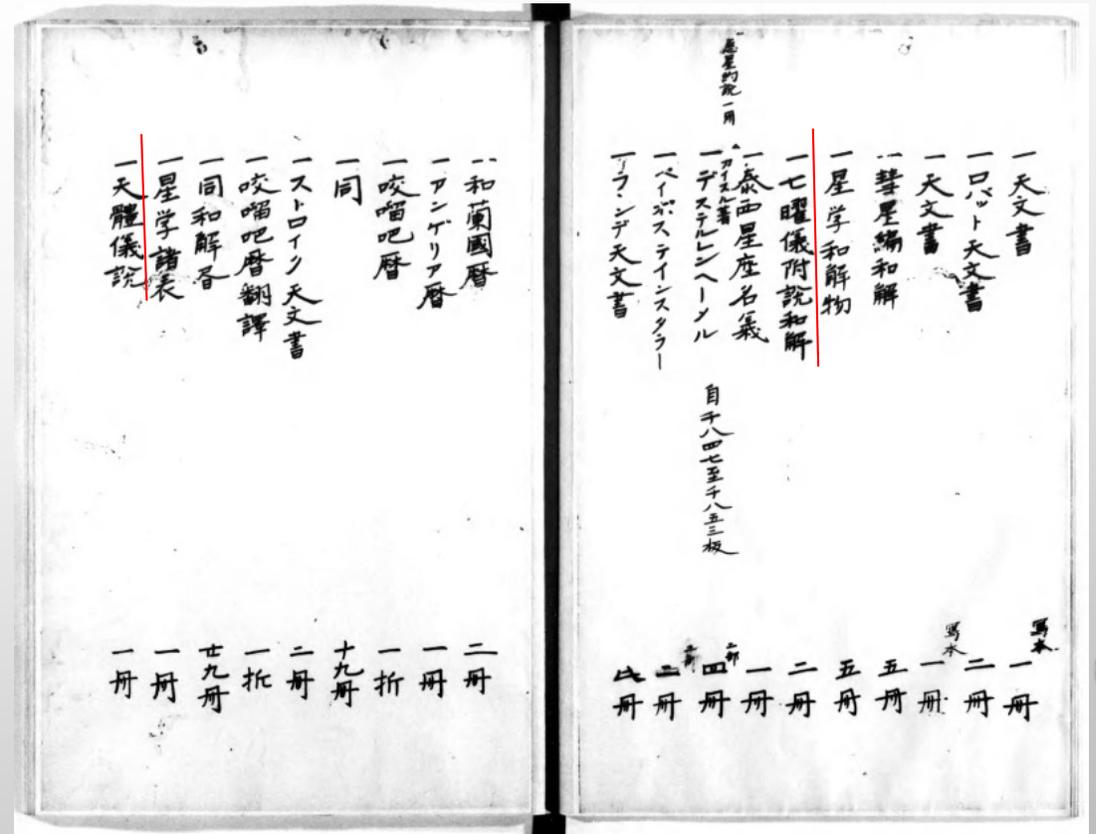 一天文書 寫本 一冊
一ロバット天文書 二冊
一天文書 寫本 一冊
一彗星編和解 五冊
一星学和解物 五冊
一七曜儀附説和解 二冊
一泰西星座名義 一冊
カイスル著
一デステルレンヘーメル 自千八四七至千八五三板 二部 四冊
一ペイボステインスタラー 二部 二冊
一ラランデ天文書 冊
一和蘭國暦 二冊
一アンゲリア暦 一冊
一咬𠺕吧暦 一折
一同 十九冊
一ストロイク天文書 二冊
一咬𠺕吧暦翻譯 一折
一同和解書 廿九冊
一星学諸表 一冊
一天體儀説 一冊